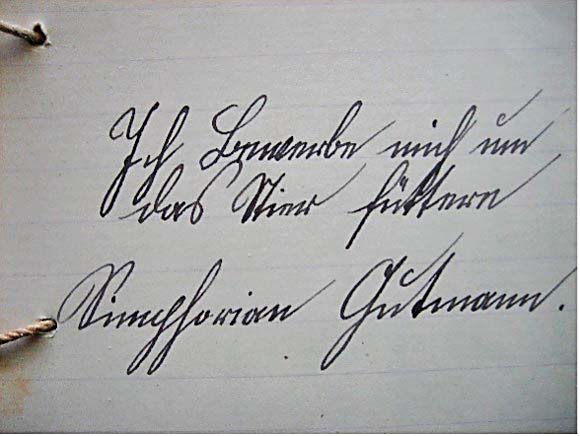 Ich Bewerbe mich um
das Stier füttern
Simphorian Gutmann.